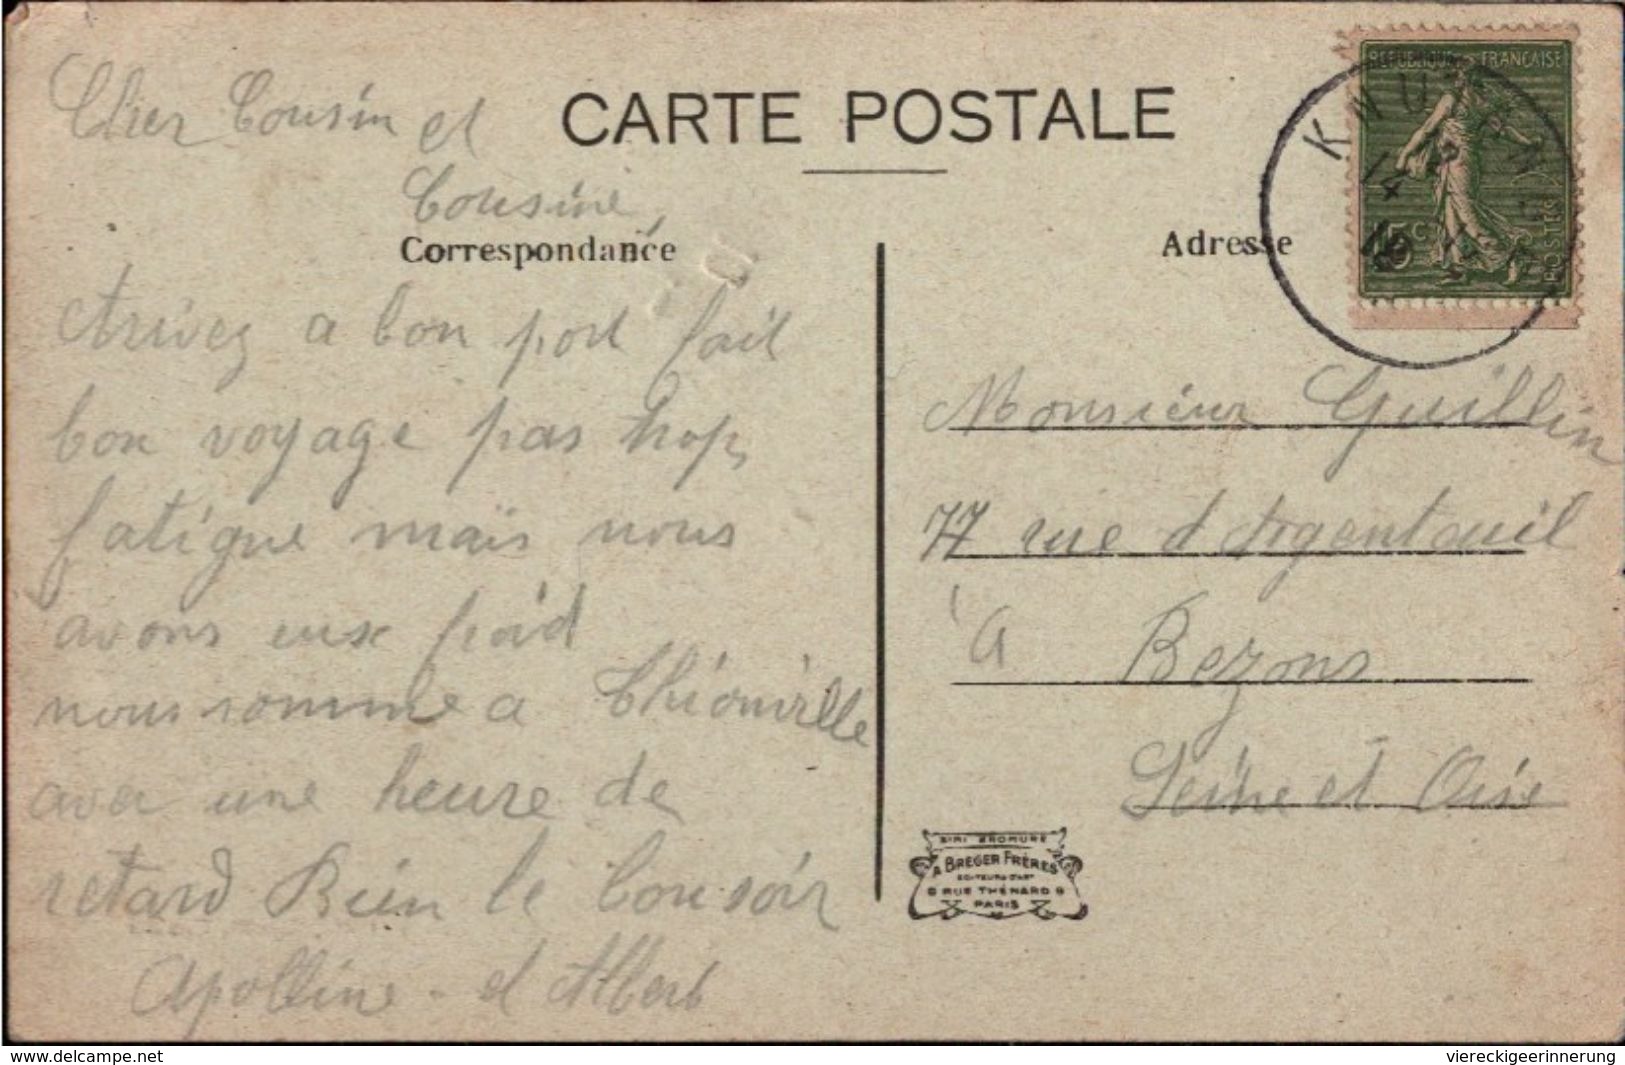 CARTE POSTALE
Cher Cousin et
Cousine,
Correspondance
Arivez a bon port fait
bon voyage pas trop
fatigue mais nous
avons eux froid
nous somme a Thionville
avec une heure de
retard Bien le bonsoir
Apolline - et Albert
Adresse
REPUBLIQUE FRANCAISE
15 C
POSTES
KNU
14
Monsieur Guillin
77 rue d Argenteuil
a Bezons
Seine et Oise
SIMI BROMURE
A BREGER FRÈRES
EDITEURS D'ART
9 RUE THÉNARD 9
PARIS
www.delcampe.net
viereckigeerinnerung